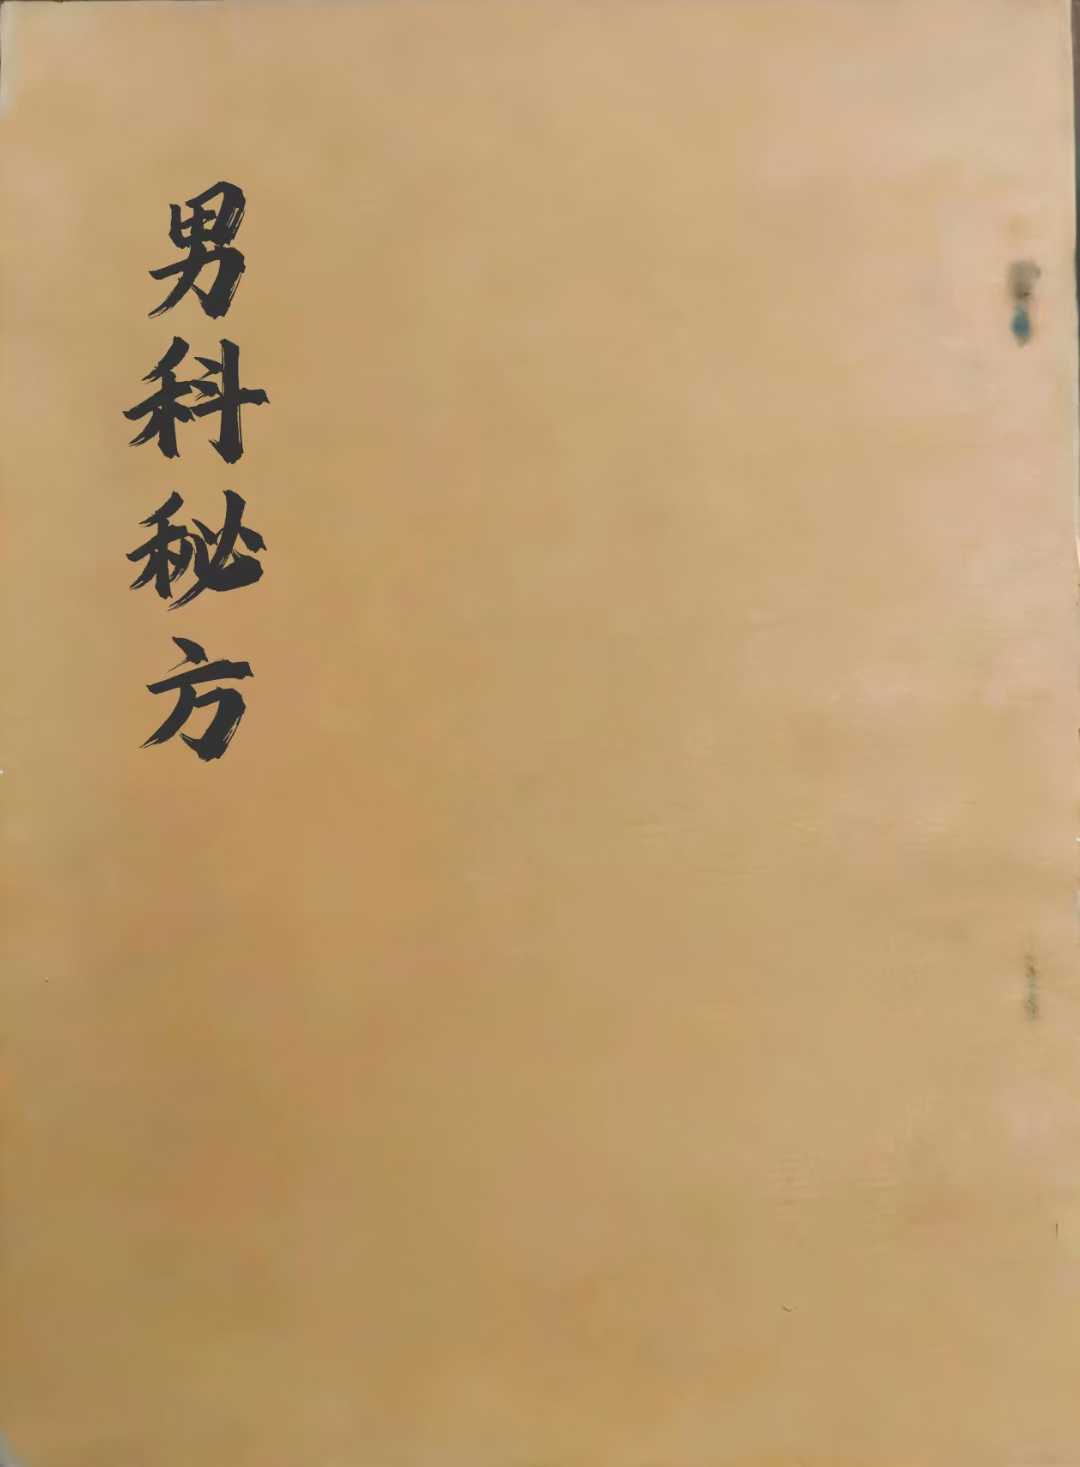 男科秘方